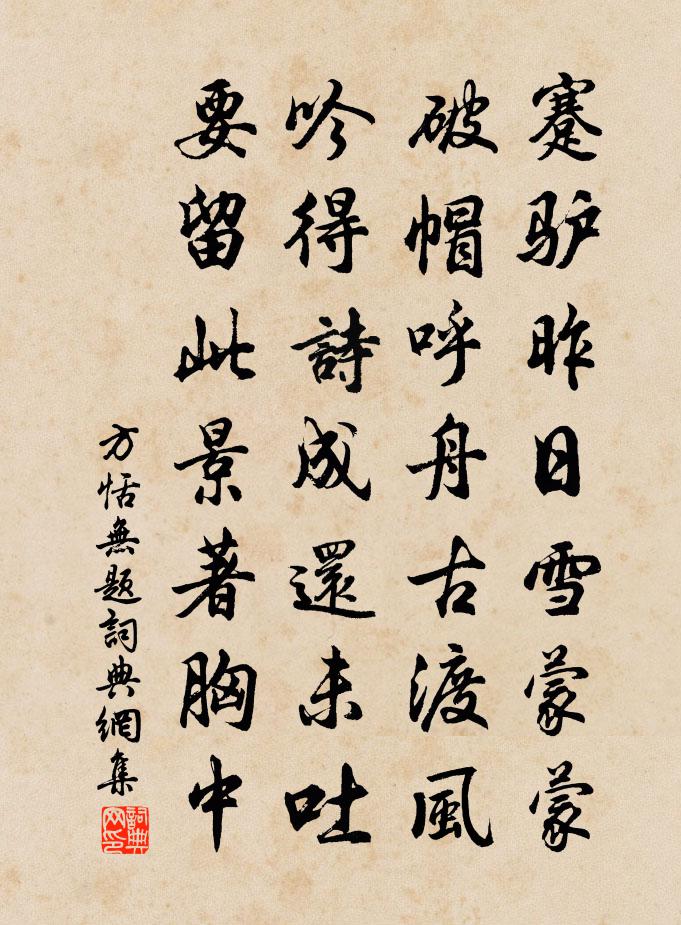 蹇驴昨日雪蒙蒙
破帽呼舟古渡風
吟得詩成還未吐
要留此景著胸中
方恬無题詞典網集
詞典网印